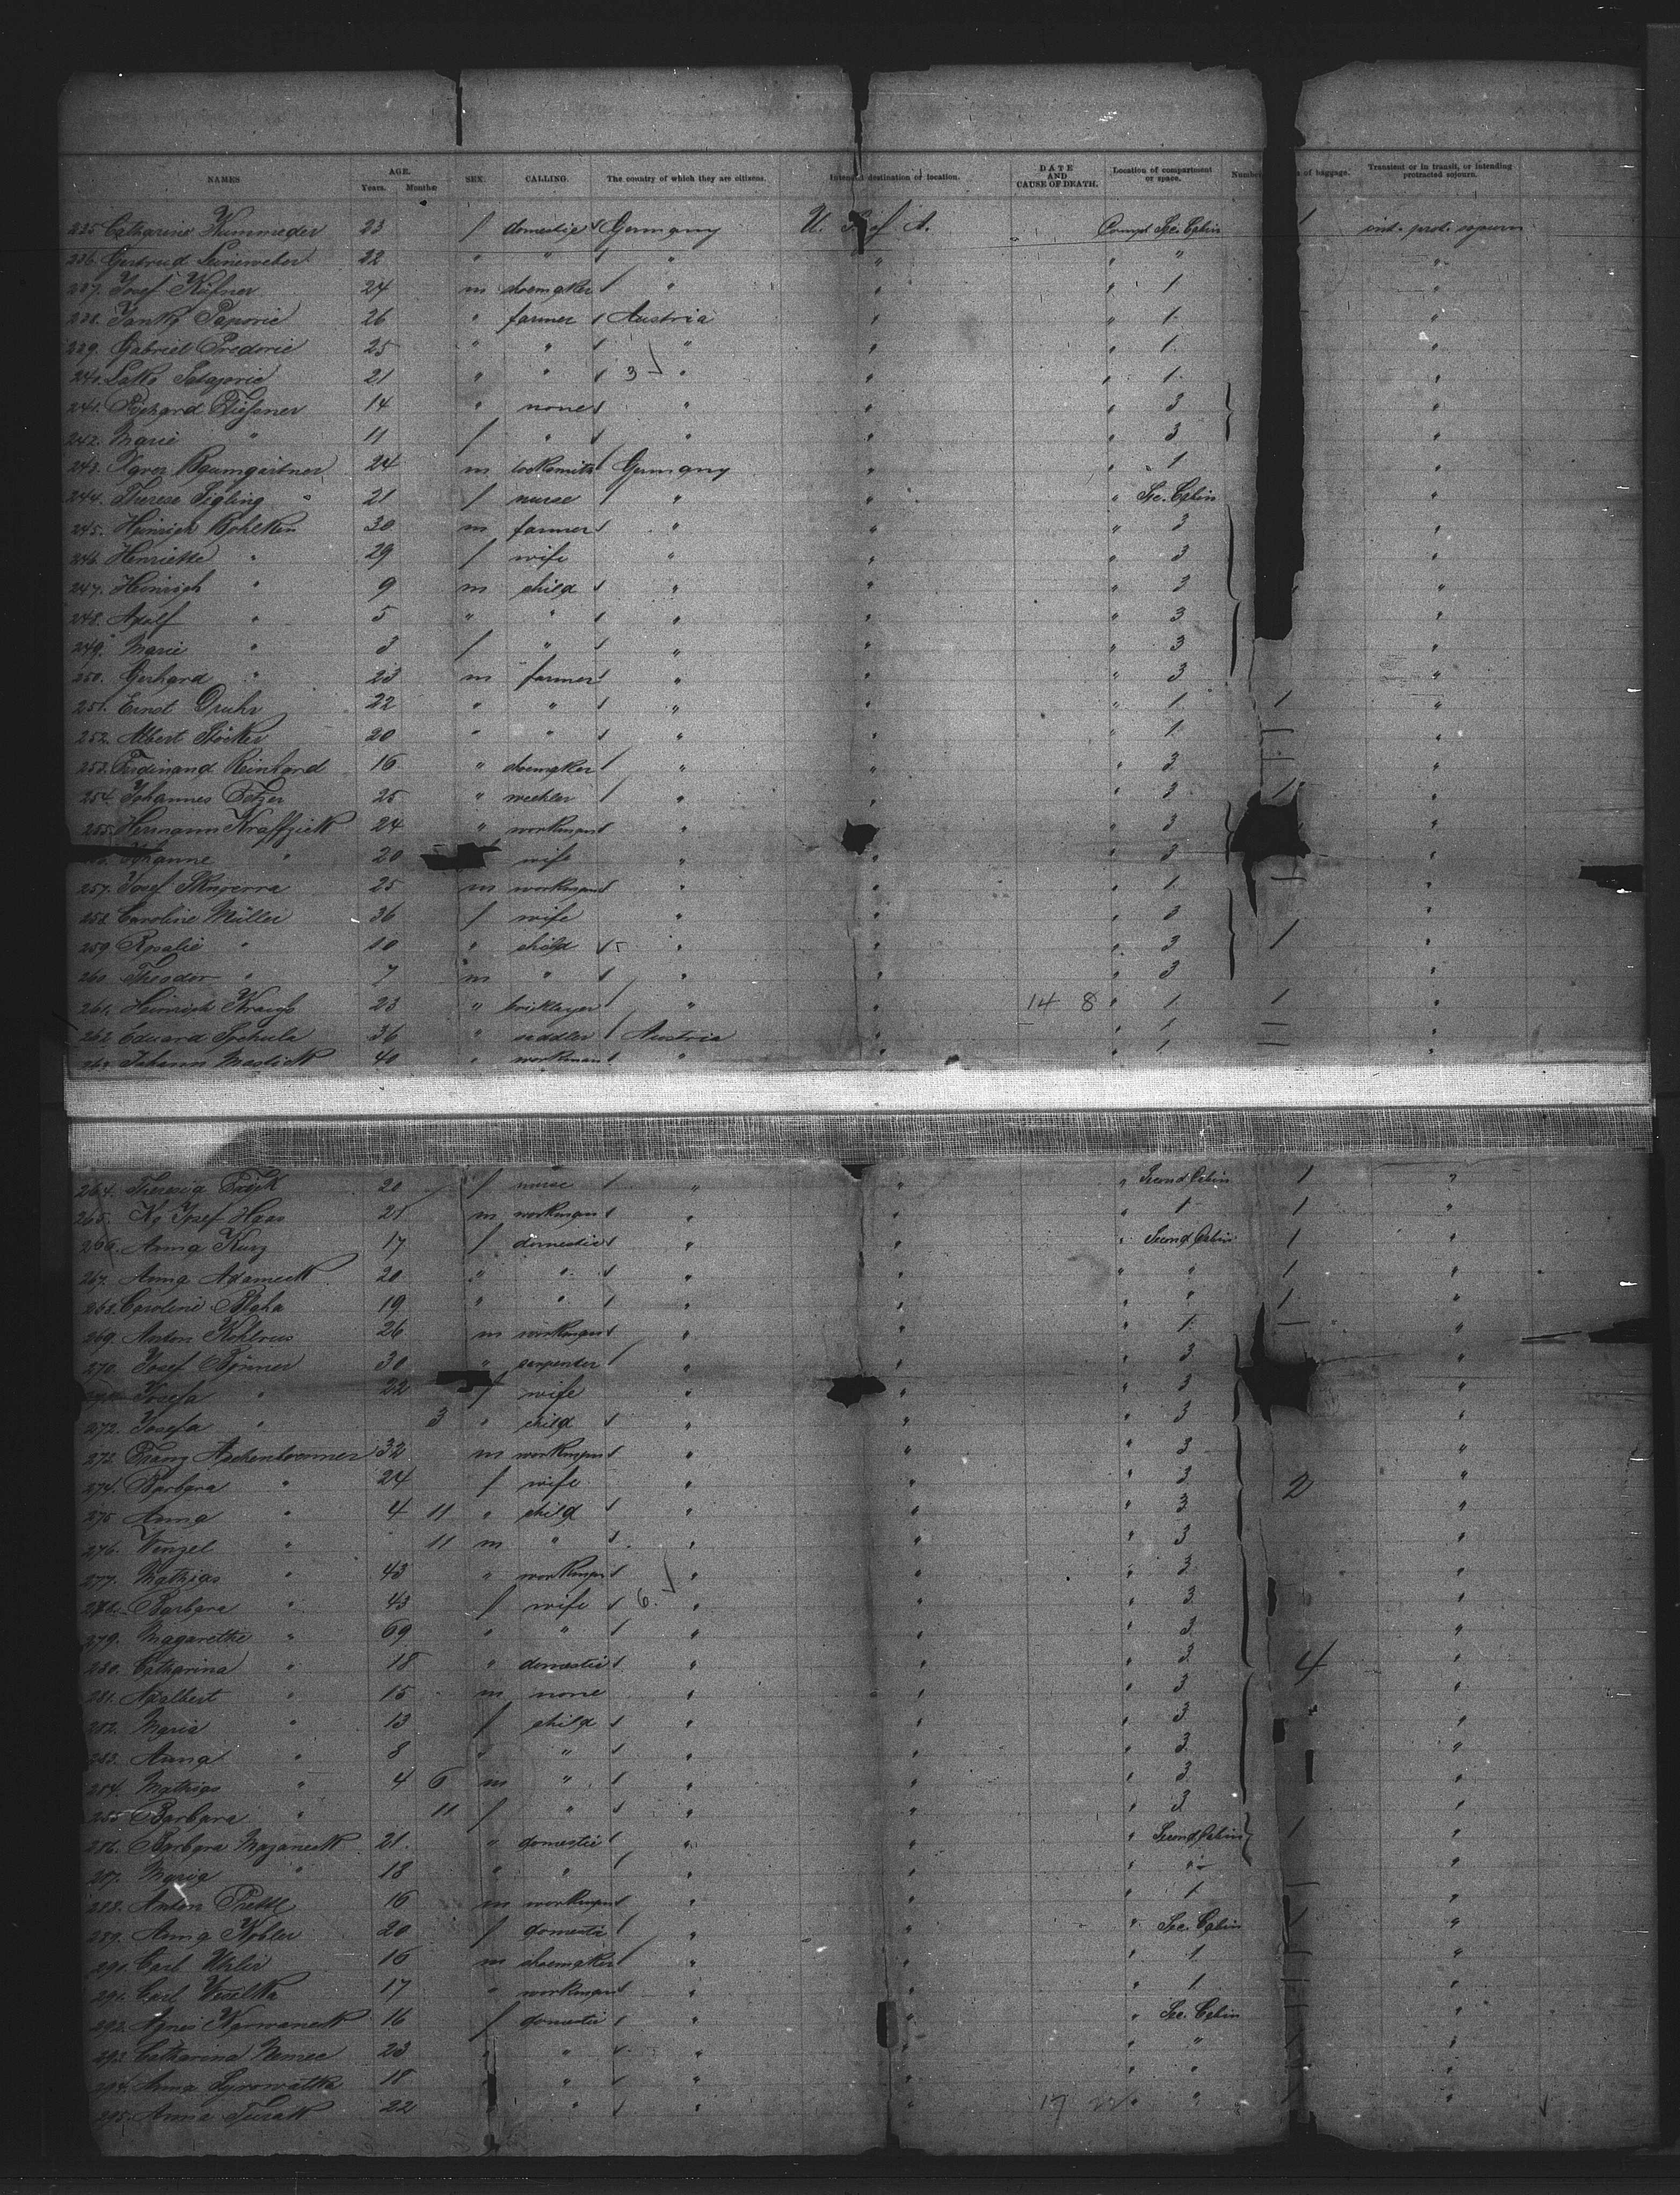 NAMES. AGE. Years. Months SEX. CALLING. The country of which they are citizens. Intended destination or location. DATE AND CAUSE OF DEATH. Location of compartment or space. Number of baggage. Transient or in transit, or intending protracted sojourn.
235. Catharine Kummeder 23 f domestic Germany U. S. of A. Compt Sec. Cabin 1 int. prot. sojourn
236. Gertrud Leineweber 22 " " " " " " "
237. Josef Küfner 24 m shoemaker " " " 1 "
238. Janko Paporic 26 " farmer Austria " " 1 "
239. Gabriel Predovic 25 " " " " " 1 "
240. 21 " " 3 " " " 1 "
241. Richard 14 " none " " " 3 "
242. Marie " 11 f " " " " 3 "
243. Xaver Baumgärtner 24 m locksmith Germany " " 1 "
244. Therese Sigling 21 f nurse " " " Sec. Cabin "
245. Heinrich Bohlken 30 m farmer " " " 3 "
246. Henriette " 29 f wife " " " 3 "
247. Heinrich " 9 m child " " " 3 "
248. Adolf " 5 " " " " " 3 "
249. Marie " 3 f " " " " 3 "
250. Gerhard " 23 m farmer " " " 3 "
251. Ernst Druhr 22 " " " " " 1 1 "
252. Albert Stöcker 20 " " " " " 1 1 "
253. Ferdinand Reinhard 16 " shoemaker " " " 3 "
254. Johannes Fetzer 25 " " " " 3 1 "
255. Hermann Kraffzick 24 " workman " " " 3 "
Johanne " 20 wife " " " 3 "
257. Josef 25 m workman " " " 1 "
258. Caroline Müller 36 f wife " " " 3 "
259. Rosalie " 10 " child " " " 3 1 "
260. Theodor " 7 m " " " " 3 "
261. Heinrich 23 " bricklayer " " 14 8 " 1 1 "
262. Eduard 36 " saddler Austria " " 1 "
263. Johann 40 " workman " " " 1 "
264. Theresia 20 f nurse " " " Second Cabin 1 "
265. Josef Haas 21 m workman " " " 1 1 "
266. Anna Kurz 17 f domestic " " " Second Cabin 1 "
267. Anna Adameck 20 " " " " " " 1 "
268. Caroline Blaha 19 " " " " " " 1 "
269. Anton 26 m workman " " " 1 "
270. Josef 30 " carpenter " " " 3 "
Josefa " 22 f wife " " " 3 "
272. Josefa " 3 " child " " " 3 "
273. Franz Aschenbrenner 32 m workman " " " 3 "
274. Barbara " 24 f wife " " " 3 2 "
275 Anna " 4 11 " child " " " 3 "
276. Wenzel " 11 m " " " " 3 "
277. Mathias " 43 " workman " " " 3 "
278. Barbara " 43 f wife 6. " " " 3 "
279. Magarethe " 69 " " " " " 3 "
280. Catharina " 18 " domestic " " " 3 4 "
281. Adalbert " 15 m none " " " 3 "
282. Maria " 13 f child " " " 3 "
283. Anna " 8 " " " " " 3 "
284. Mathias " 4 6 m " " " " 3 "
285 Barbara " 11 f " " " " 3 "
286. Barbara Mazaneck 21. " domestic " " " Second Cabin 1 "
287. Maria " 18 " " " " " " "
288. Anton 16 m workman " " " 1 "
289. Anna Kobler 20 f domestic " " " Sec. Cabin 1 "
290. Carl Uhlir 16 m shoemaker " " " 1 "
291. Carl Weselka 17 " workman " " " 1 "
292. Agnes 16 f domestic " " " Sec. Cabin "
293. Catharina Nemec 23 " " " " " " "
294. Anna Syrowatka 18 " " " " " " "
295. Anna Turak 22 " " " 17 " " 1 "